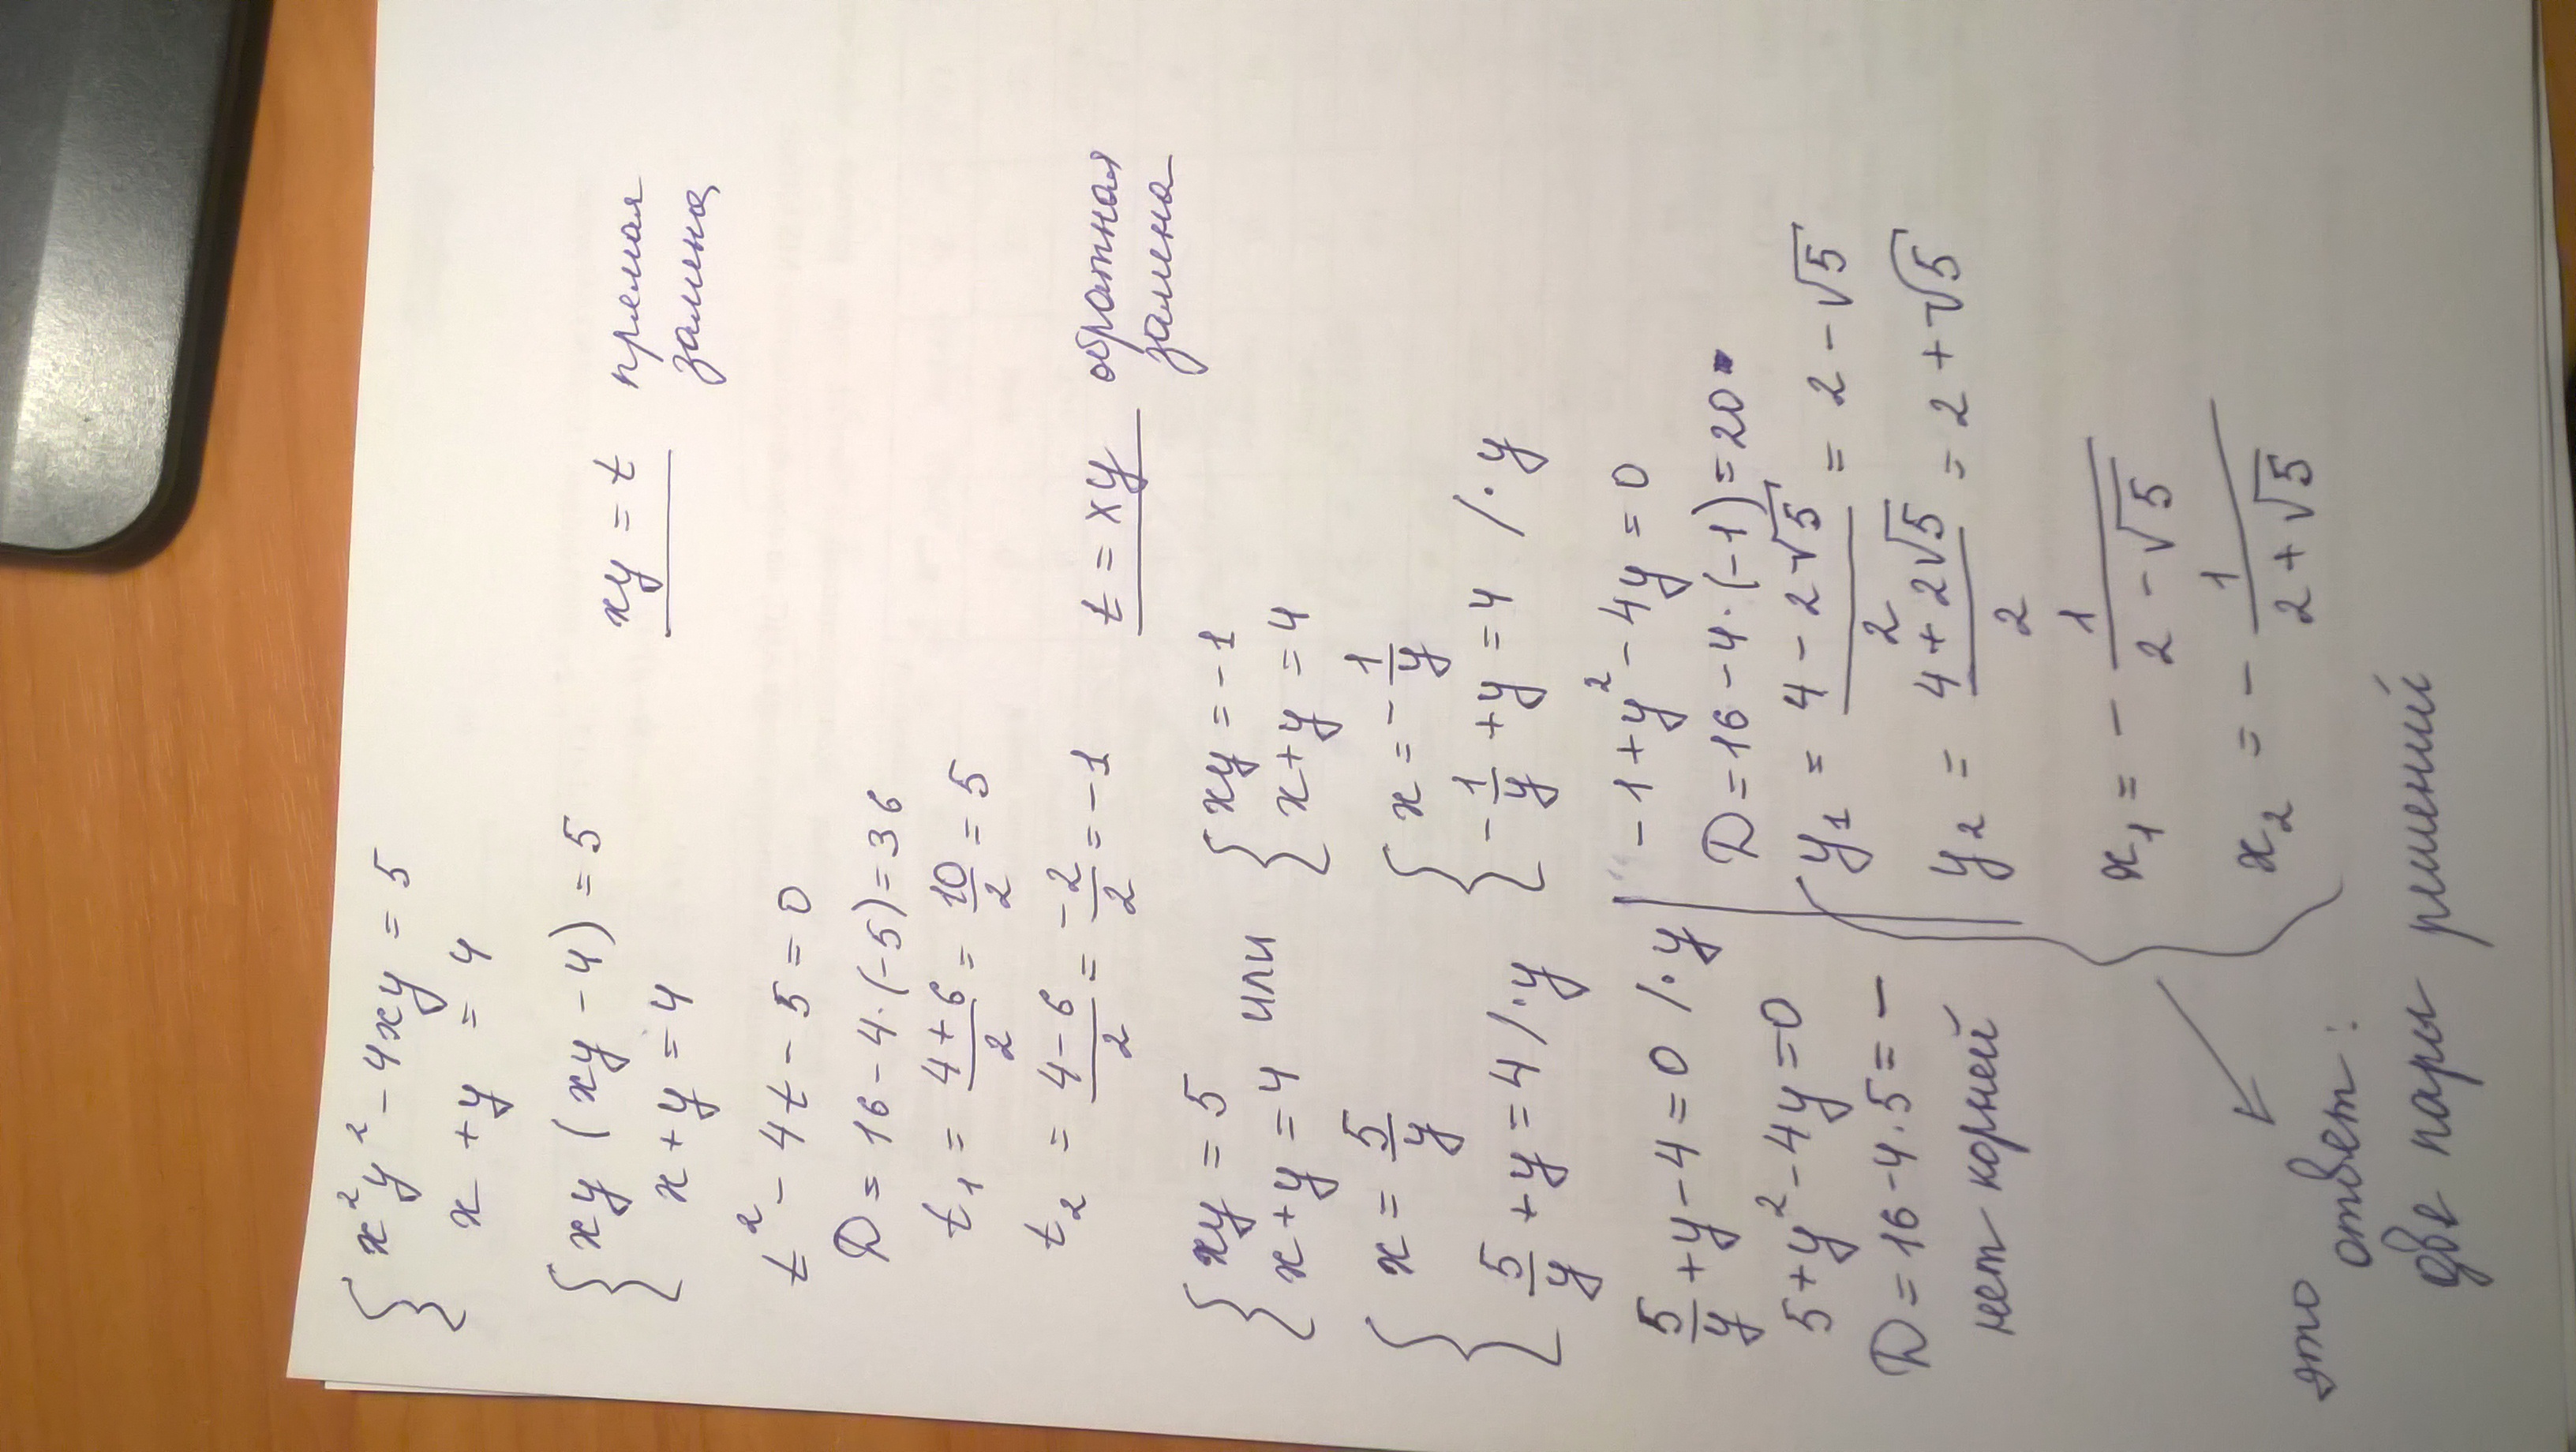 { x²y² - 4xy = 5
x + y = 4
{ xy (xy - 4) = 5
x + y = 4
xy = t прямая
замена
t² - 4t - 5 = 0
D = 16 - 4·(-5) = 36
t₁ = (4+6)/2 = 10/2 = 5
t₂ = (4-6)/2 = -2/2 = -1
t = xy обратная
замена
{ xy = 5
x + y = 4 или
{ xy = -1
x + y = 4
{ x = 5/y
5/y + y = 4 /·y
5/y + y - 4 = 0 /·y
5 + y² - 4y = 0
D = 16 - 4·5 = -
нет корней
{ x = -1/y
-1/y + y = 4 /·y
-1 + y² - 4y = 0
D = 16 - 4·(-1) = 20
y₁ = (4 - 2√5)/2 = 2 - √5
y₂ = (4 + 2√5)/2 = 2 + √5
x₁ = - 1/(2 - √5)
x₂ = - 1/(2 + √5)
это
ответ:
две пары решений